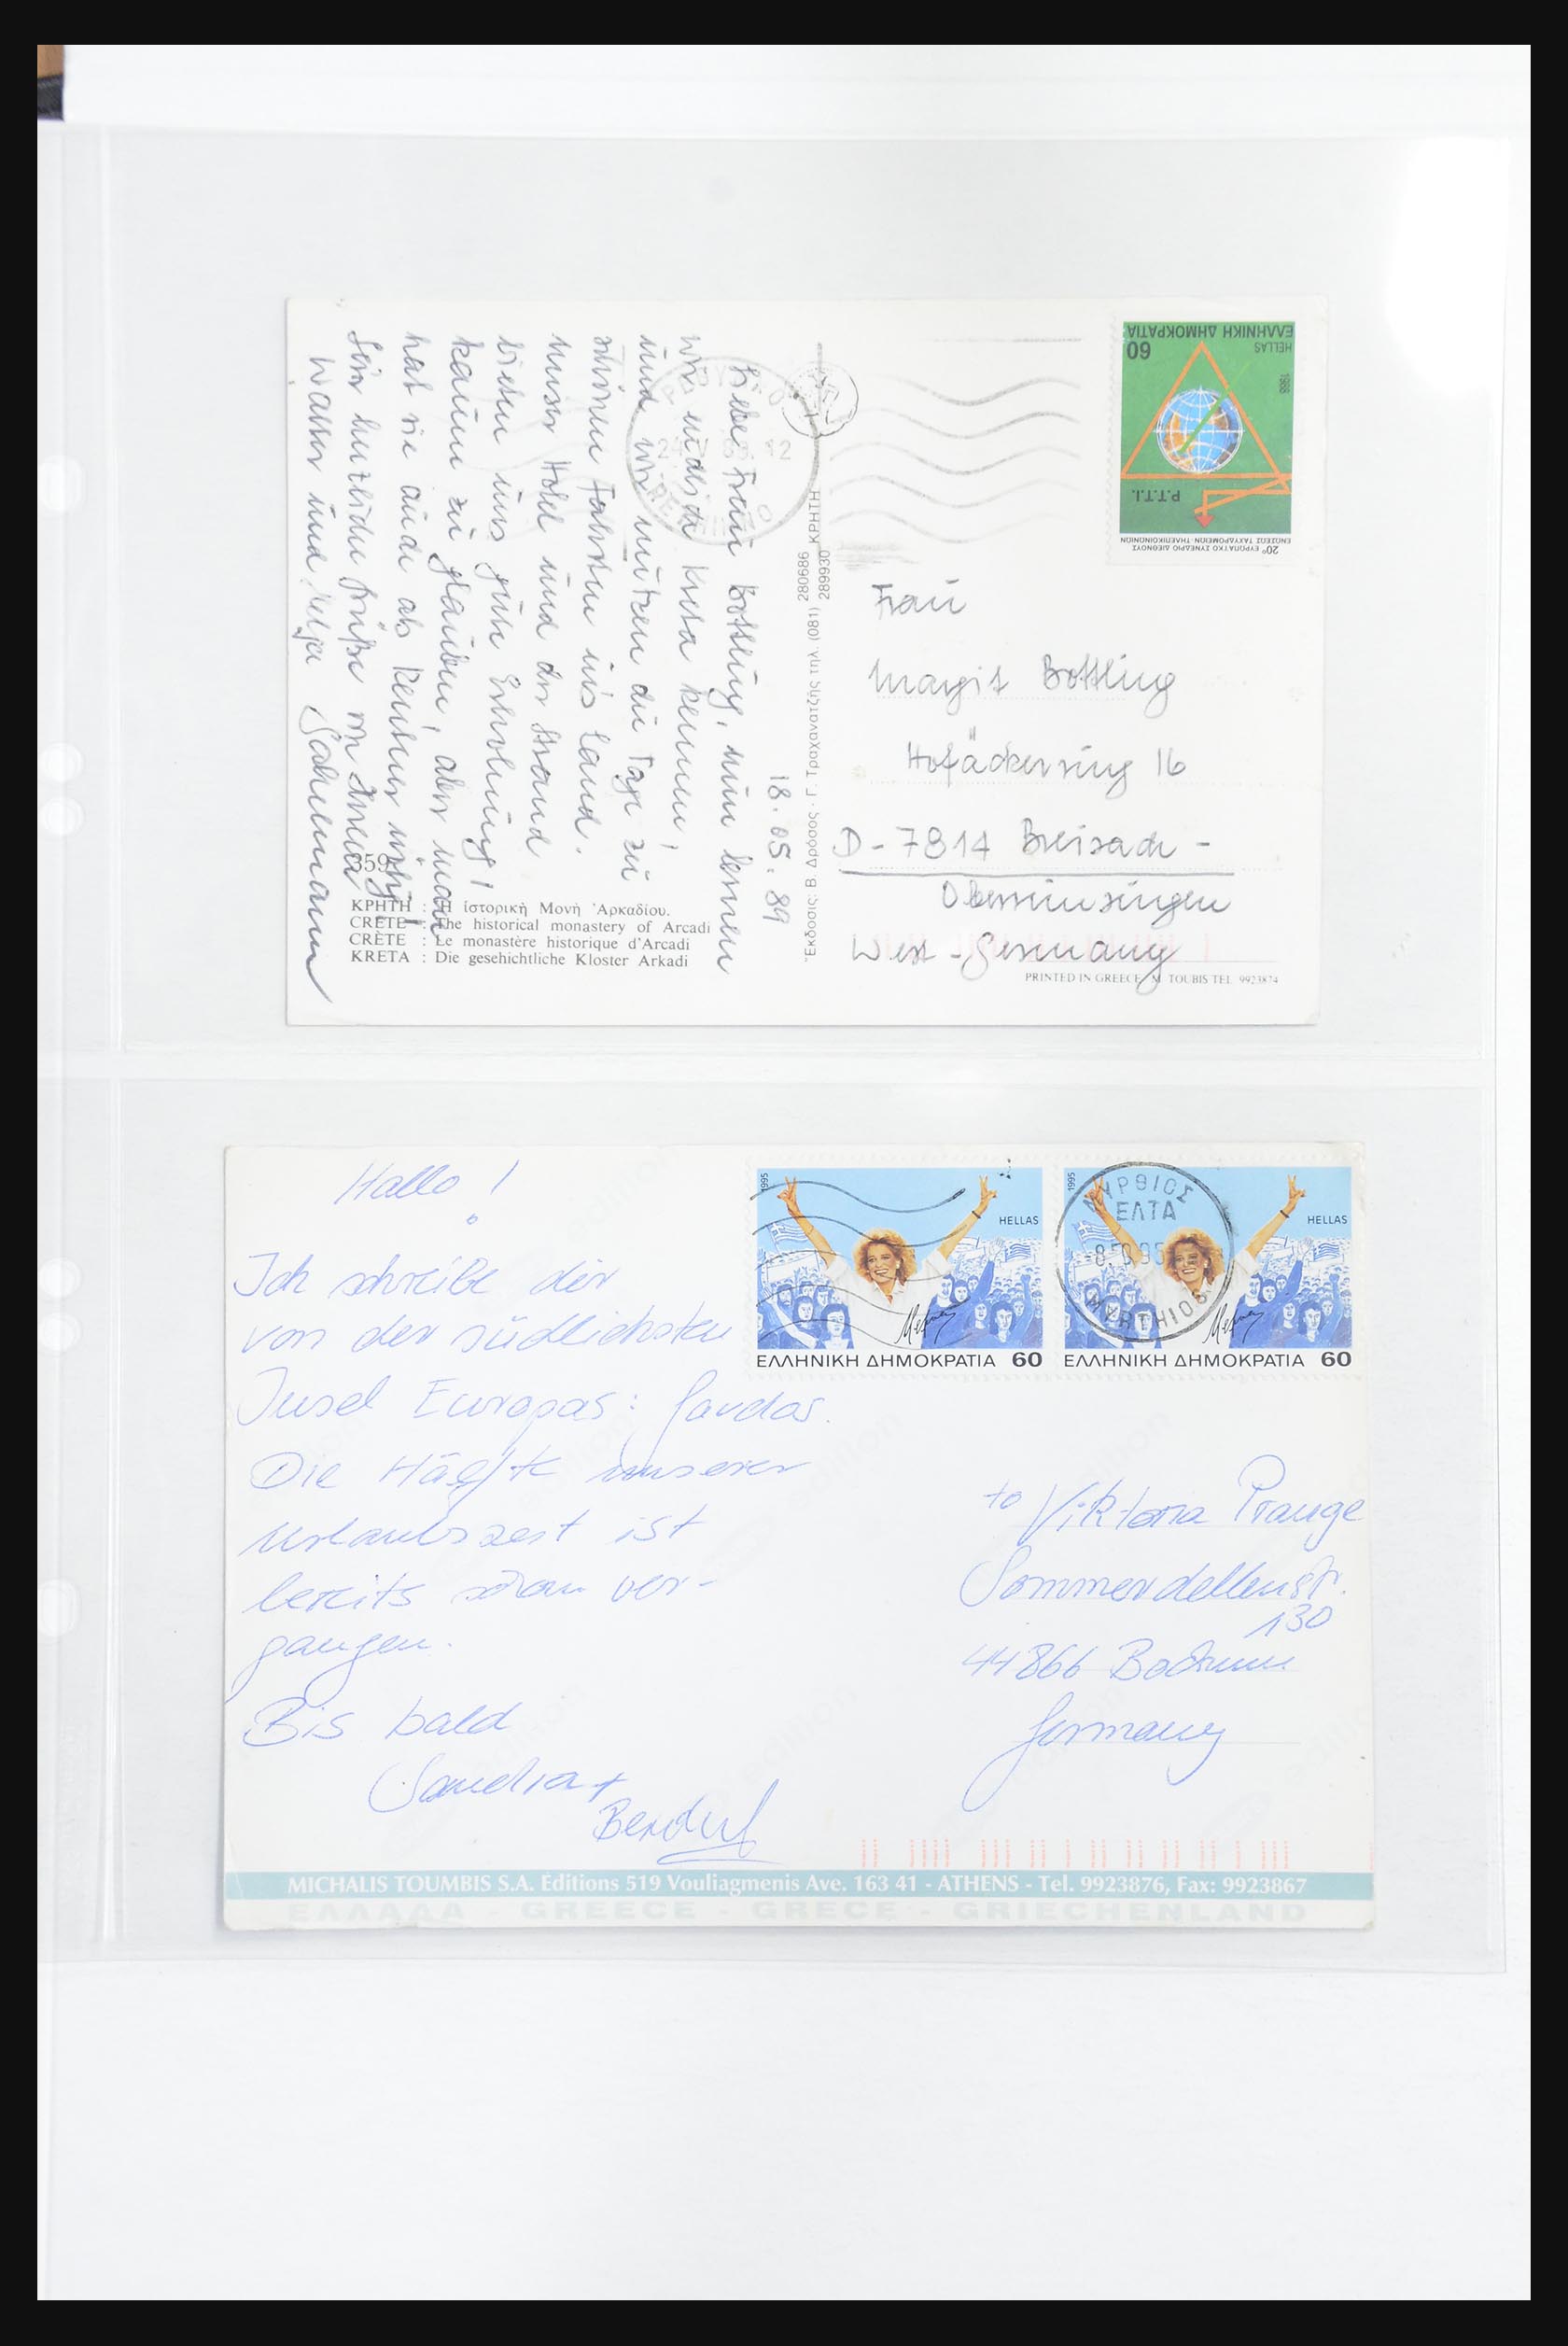 18.05.89
Liebe Frau Bottling, nun lernen
wir endlich Kreta kennen!
und wir nützen die Tage zu
schönen Fahrten ins Land.
Unser Hotel und der Strand
bieten uns gute Erholung!
kaum zu glauben, aber man
hat sie auch als Rentner nötig!
Sehr herzliche Grüße von Ihren
Walter und Helga
359
ΚΡΗΤΗ : Ἡ ἱστορικὴ Μονὴ Ἀρκαδίου.
CRETE : The historical monastery of Arcadi
CRÈTE : Le monastère historique d'Arcadi
KRETA : Die gesehichtliche Kloster Arkadi
24 V 89. 12
Ἔκδοσις: Β. Δρόσος - Γ. Τραχανατζής τηλ. (081) 280686 289930 ΚΡΗΤΗ
ΕΛΛΗΝΙΚΗ ΔΗΜΟΚΡΑΤΙΑ
60
HELLAS
1988
P.T.T.I.
20ο ΕΥΡΩΠΑΪΚΟ ΣΥΝΕΔΡΙΟ ΔΙΕΘΝΟΥΣ
ΕΝΩΣΕΩΣ ΤΑΧΥΔΡΟΜΕΙΩΝ-ΤΗΛΕΠΙΚΟΙΝΩΝΙΩΝ
Frau
Margit Bottling
Hofäckerring 16
D-7814 Breisach -
Oberrimsingen
West-Germany
PRINTED IN GREECE M. TOUBIS TEL 9923874
Hallo!
Ich schreibe dir
von der südlichsten
Insel Europas: Gavdos.
Die Hälfte unserer
Urlaubszeit ist
bereits schon ver-
gangen.
Bis bald
Sandra +
1995
HELLAS
ΕΛΛΗΝΙΚΗ ΔΗΜΟΚΡΑΤΙΑ 60
1995
HELLAS
ΕΛΛΗΝΙΚΗ ΔΗΜΟΚΡΑΤΙΑ 60
ΜΥΡΘΙΟΣ
ΕΛΤΑ
MYRTHIOS
to Viktoria Prange
Sommerdellenstr.
130
44866 Bochum
Germany
MICHALIS TOUMBIS S.A. Editions 519 Vouliagmenis Ave. 163 41 - ATHENS - Tel. 9923876, Fax: 9923867
ΕΛΛΑΔΑ - GREECE - GRECE - GRIECHENLAND